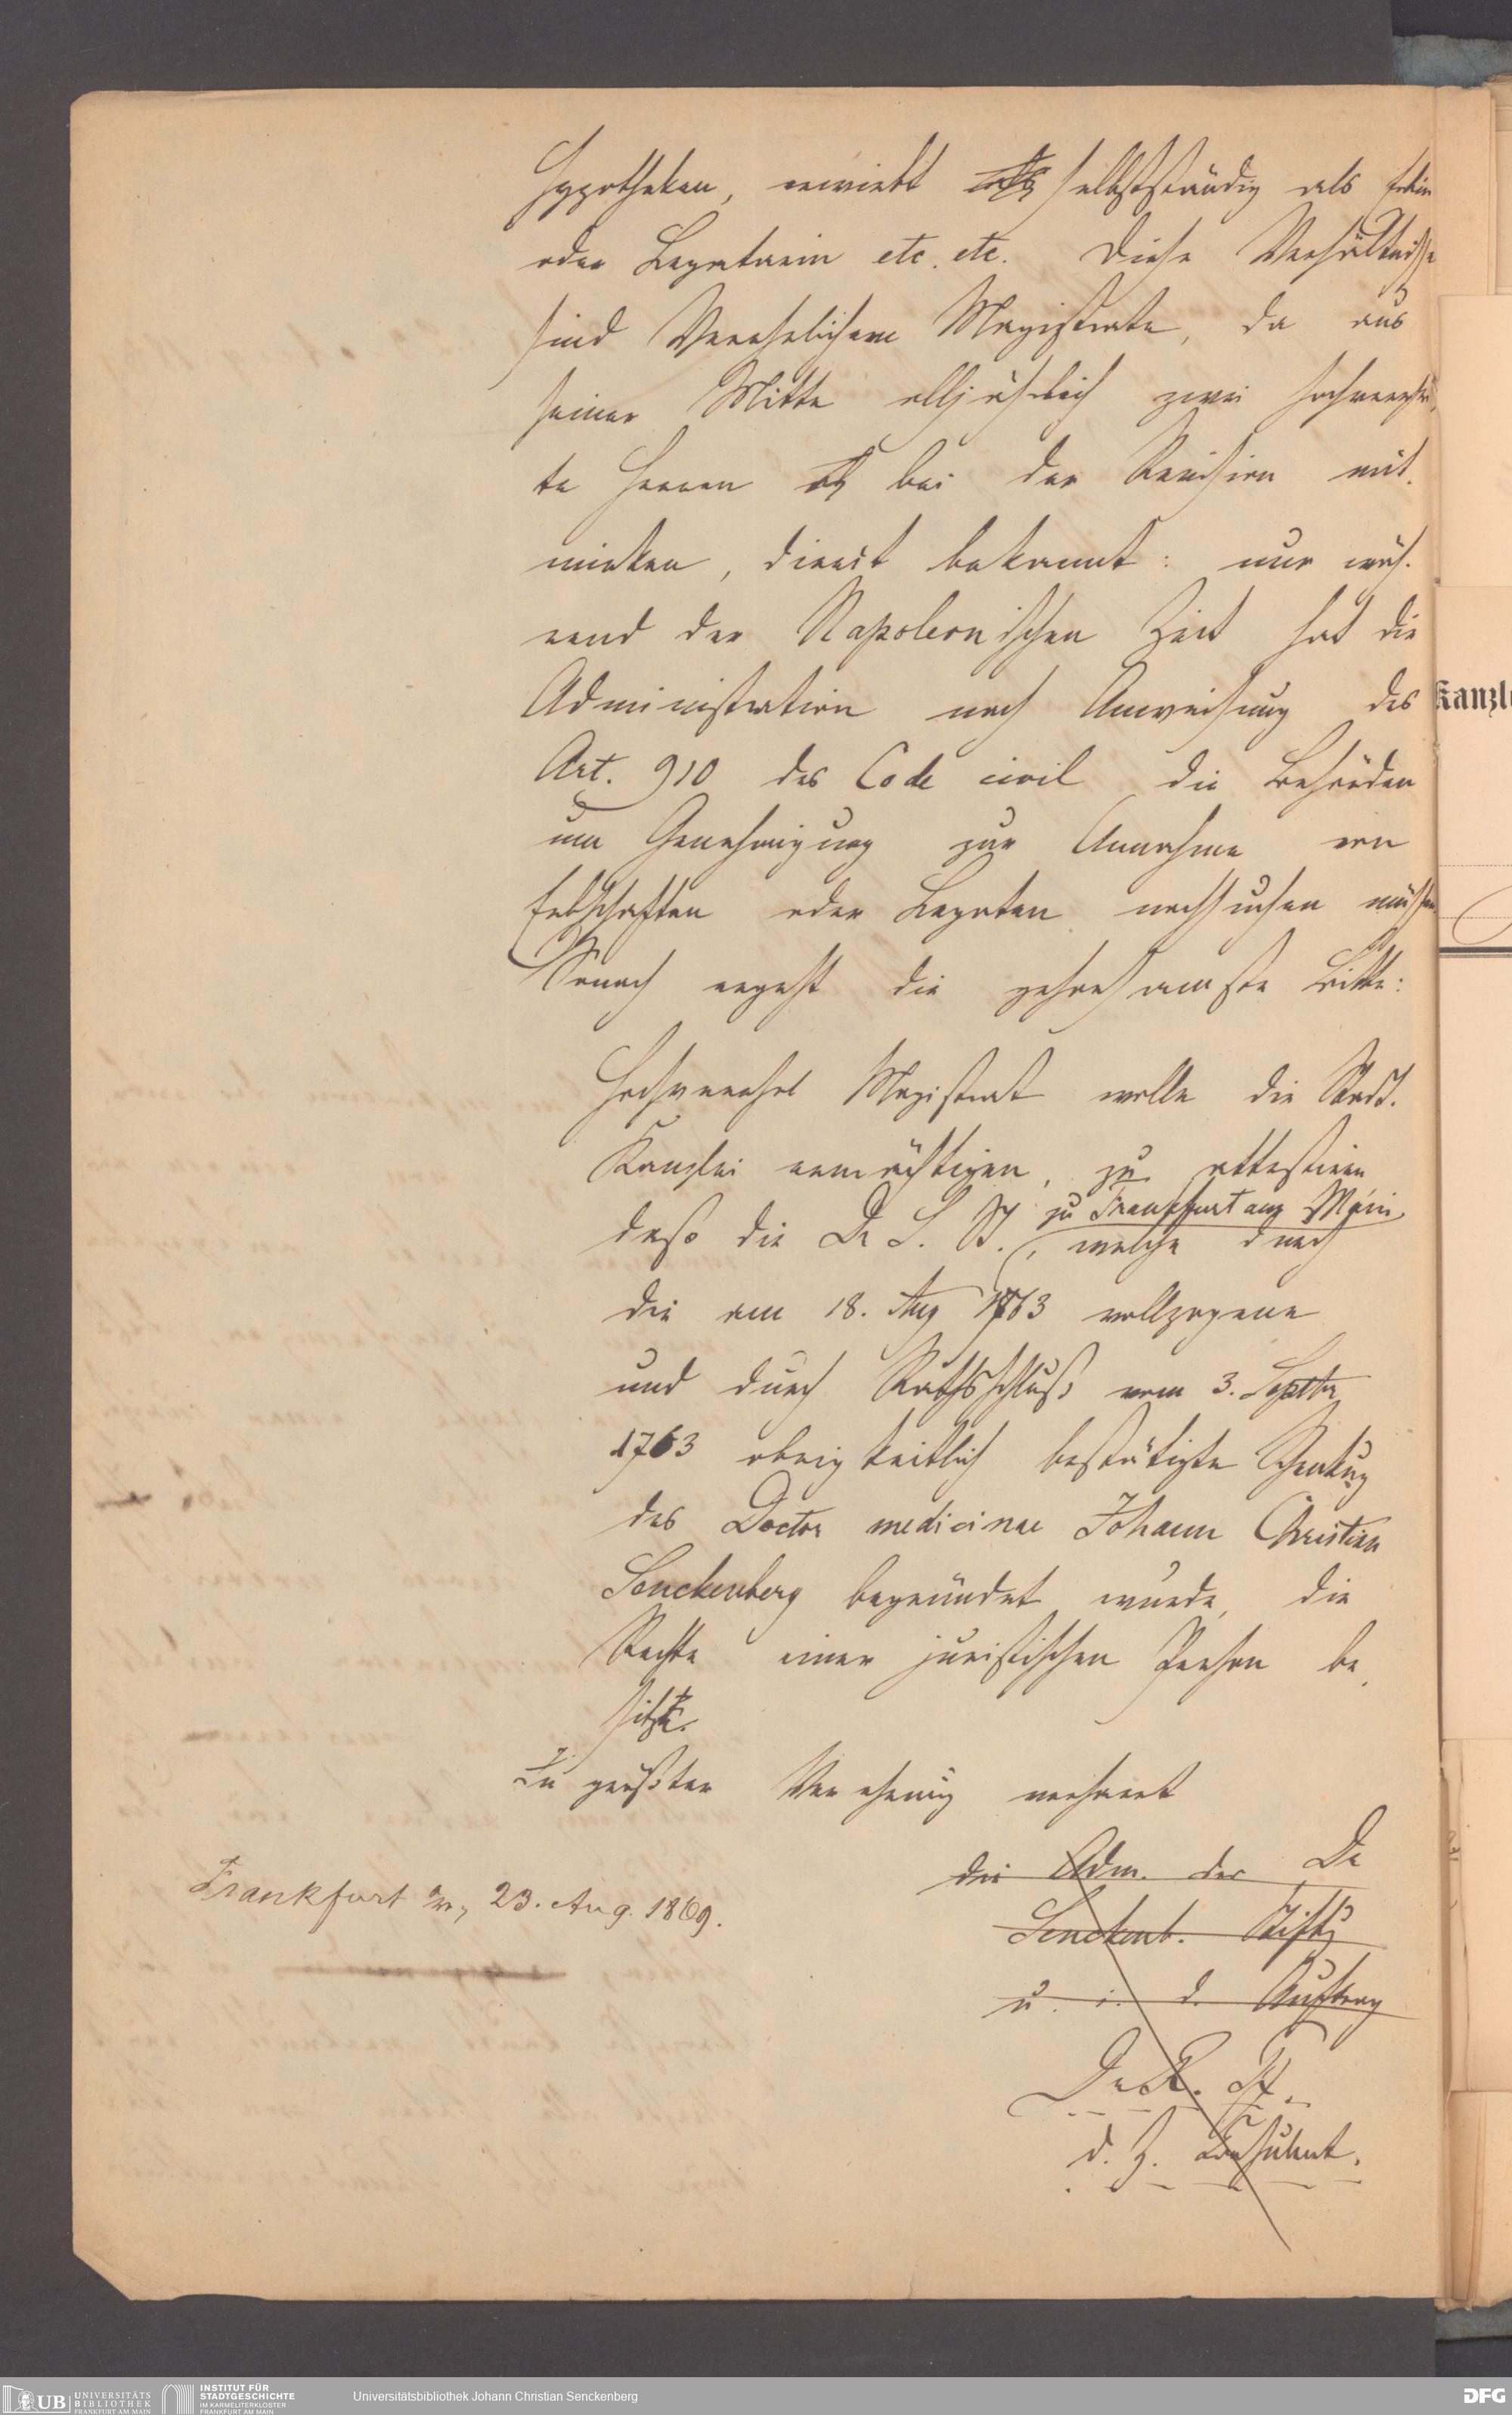 Hypotheken, erwirbt selbstständig als Erbin
oder Legatarin etc. etc. Diese Verhältnisse
sind Verehrlichem Magistrate, da aus
seiner Mitte alljährlich zwei hochverehr-
te Herren bei der Revision mit-
wirken, direct bekannt: nur wäh-
rend der Napoleonischen Zeit hat die
Administration nach Anweisung des
Art. 910 des Code civil die Behörden
um Genehmigung zur Annahme von
Erbschaften oder Legaten nachsuchen müssen
Darnach ergeht die gehorsamste Bitte:
Hochverehrl Magistrat wolle die Stadt-
Kanzlei ermächtigen, zu attestiren
zu Frankfurt am Main
daß die Dr S. St., welche durch
die am 18. Aug 1763 vollzogene
und durch Rathsschluß vom 3. Septbr
1763 obrigkeitlich bestätigte Schenkung
des Doctor medicinae Johann Christian
Senckenberg begründet wurde, die
Rechte einer juristischen Person be-
sitzt.
In größter Verehrung verharrt
die Adm. der Dr
Senckenb. Stiftg
u. i. d. Auftrag
Frankfurt a/M, 23. Aug. 1869.
Dr
d. Z. Consulent.
Kanzl
UB UNIVERSITÄTS
BIBLIOTHEK
FRANKFURT AM MAIN
INSTITUT FÜR
STADTGESCHICHTE
IM KARMELITERKLOSTER
FRANKFURT AM MAIN
Universitätsbibliothek Johann Christian Senckenberg
DFG